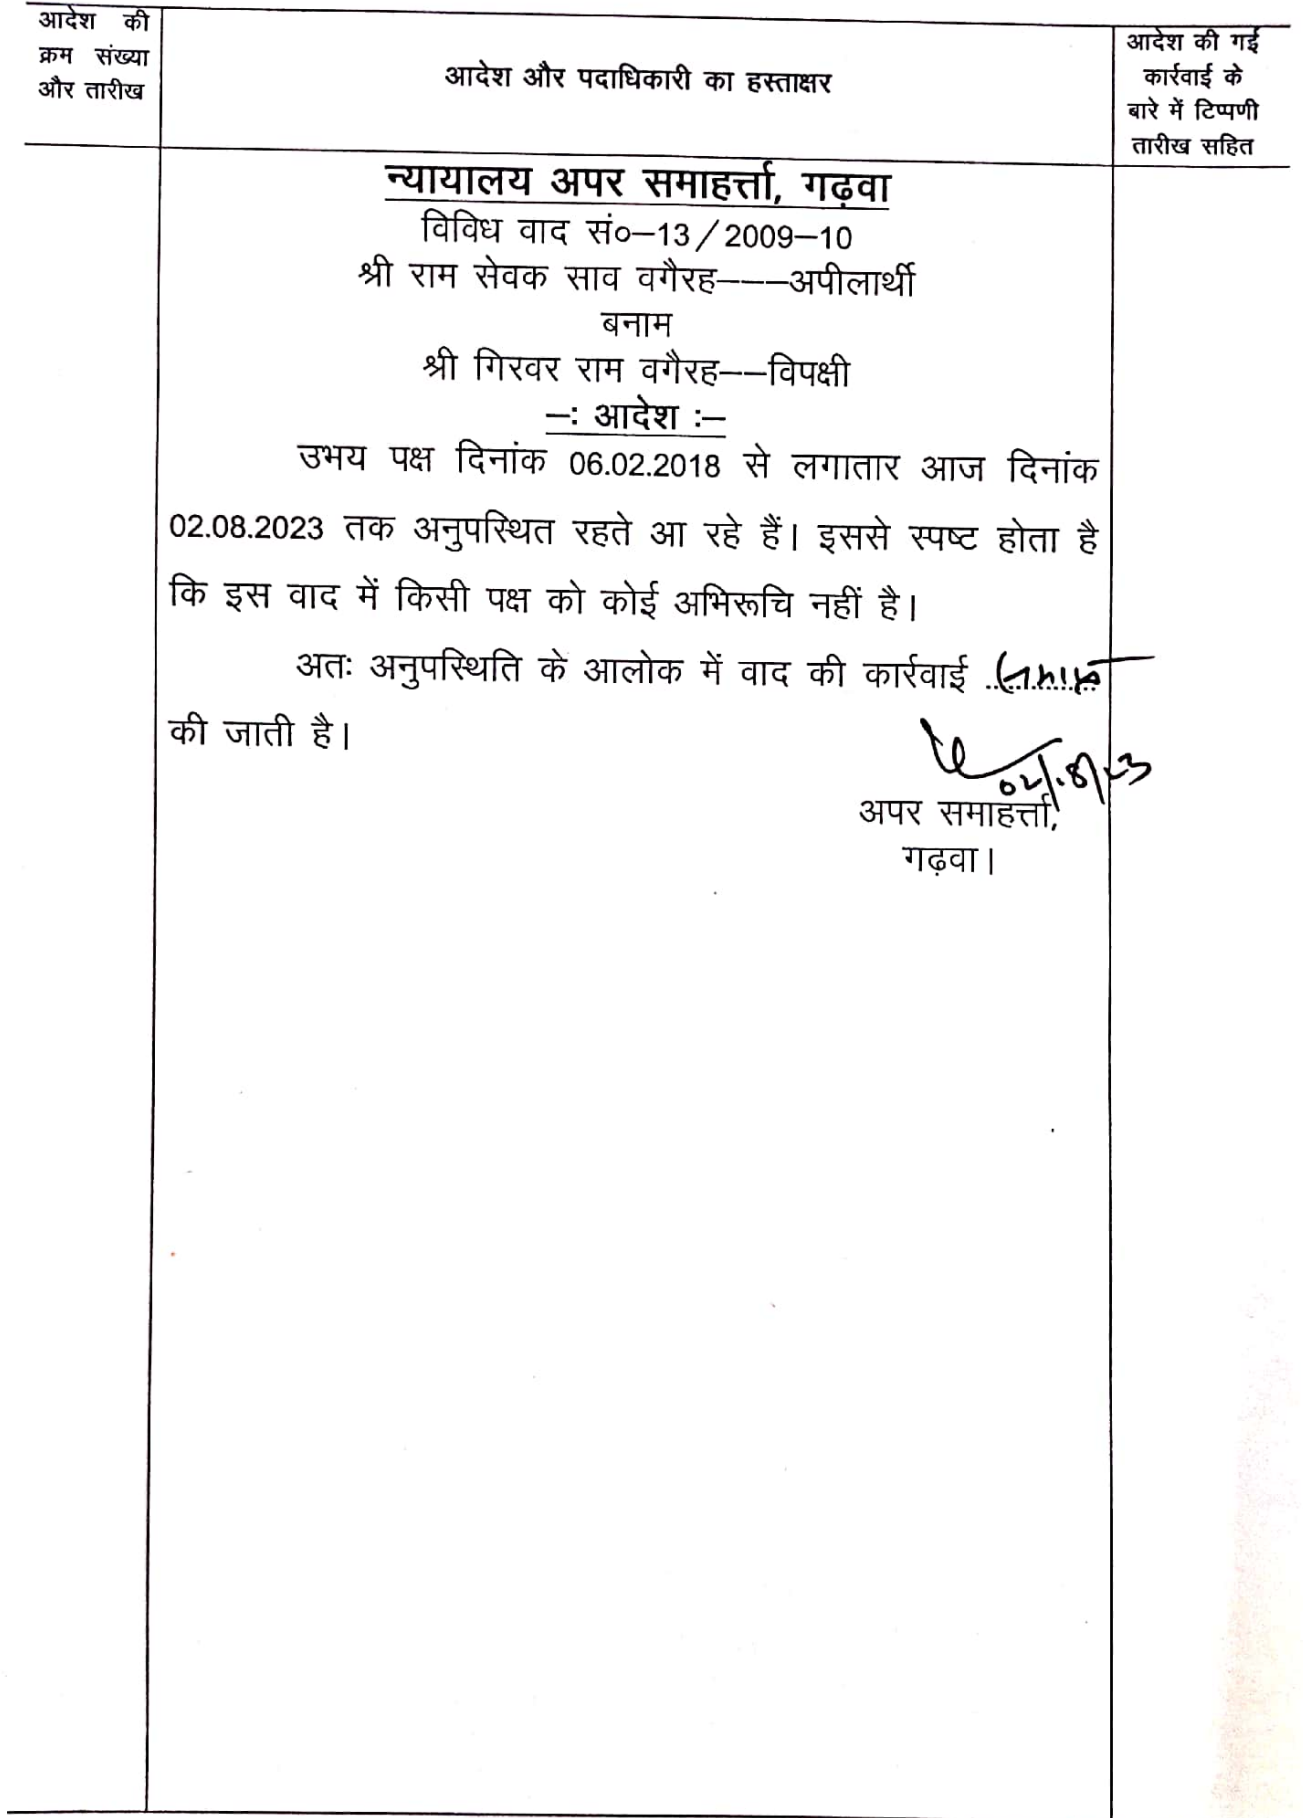 आदेश की
क्रम संख्या
और तारीख
आदेश और पदाधिकारी का हस्ताक्षर
आदेश की गई
कार्रवाई के
बारे में टिप्पणी
तारीख सहित
न्यायालय अपर समाहर्त्ता, गढ़वा
विविध वाद सं०–13/2009–10
श्री राम सेवक साव वगैरह–––अपीलार्थी
बनाम
श्री गिरवर राम वगैरह––विपक्षी
–: आदेश :–
उभय पक्ष दिनांक 06.02.2018 से लगातार आज दिनांक
02.08.2023 तक अनुपस्थित रहते आ रहे हैं। इससे स्पष्ट होता है
कि इस वाद में किसी पक्ष को कोई अभिरूचि नहीं है।
अतः अनुपस्थिति के आलोक में वाद की कार्रवाई
की जाती है।
02/.8/23
अपर समाहर्त्ता,
गढ़वा।